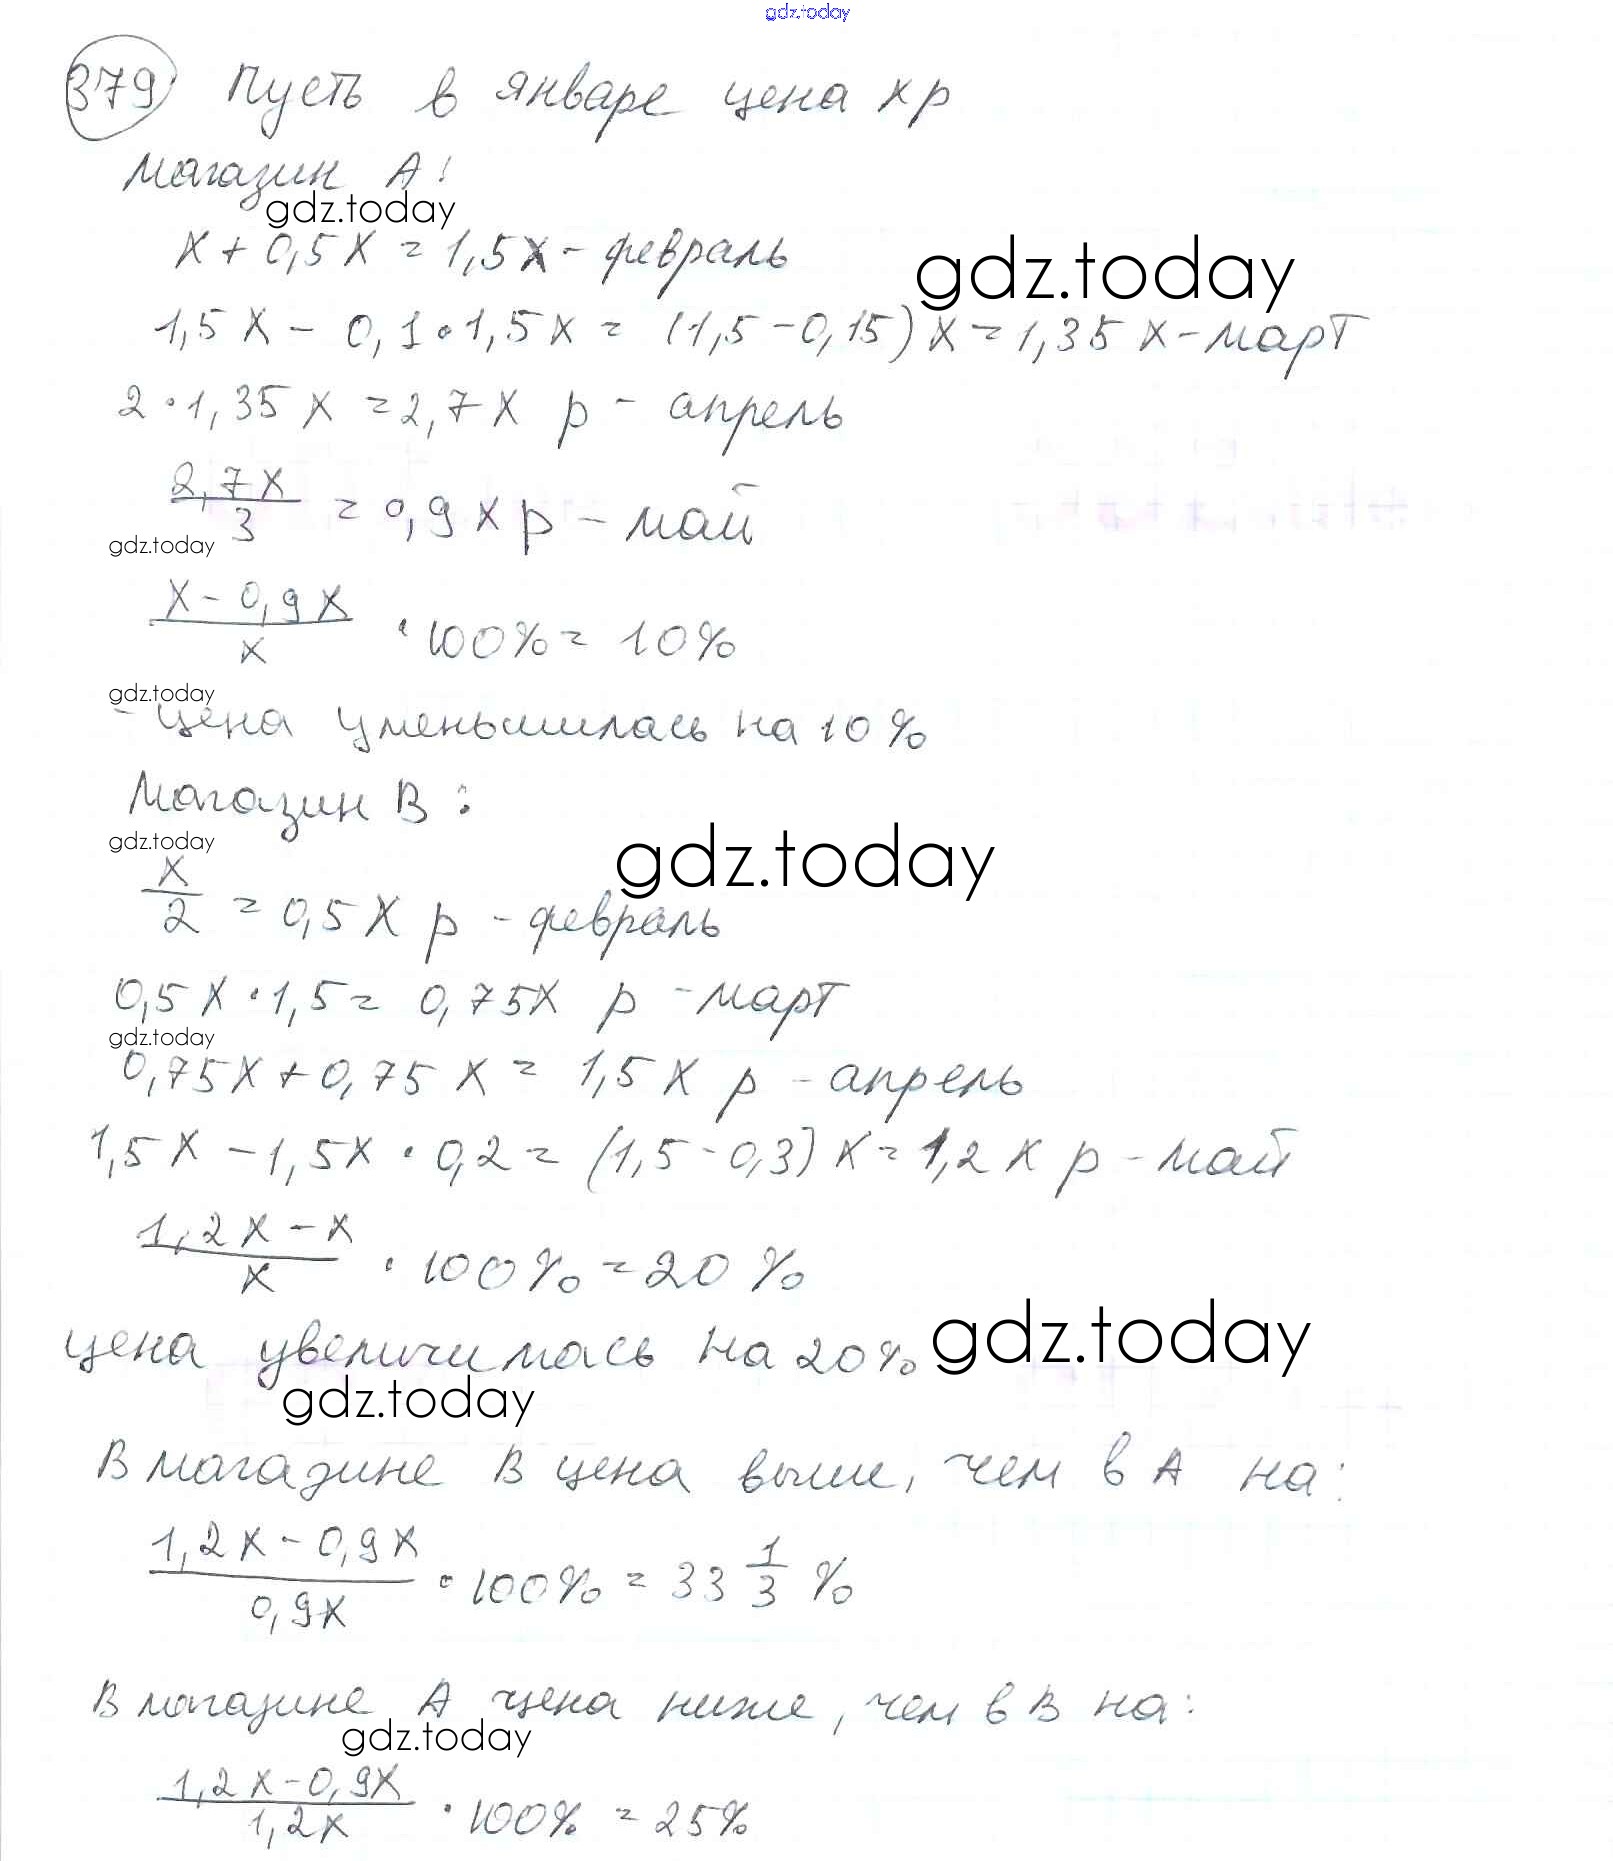 gdz.today
379 Пусть в январе цена x р
Магазин А:
gdz.today
x + 0,5x = 1,5x - февраль
gdz.today
1,5x - 0,1 · 1,5x = (1,5 - 0,15)x = 1,35x - март
2 · 1,35x = 2,7x р - апрель
2,7x / 3 = 0,9x р - май
gdz.today
x - 0,9x / x · 100% = 10%
gdz.today
- цена уменьшилась на 10%
Магазин В:
gdz.today
gdz.today
x / 2 = 0,5x р - февраль
0,5x · 1,5 = 0,75x р - март
gdz.today
0,75x + 0,75x = 1,5x р - апрель
1,5x - 1,5x · 0,2 = (1,5 - 0,3)x = 1,2x р - май
1,2x - x / x · 100% = 20%
цена увеличилась на 20%
gdz.today
gdz.today
В магазине В цена выше, чем в А на:
1,2x - 0,9x / 0,9x · 100% = 33 1/3 %
В магазине А цена ниже, чем в В на:
gdz.today
1,2x - 0,9x / 1,2x · 100% = 25%